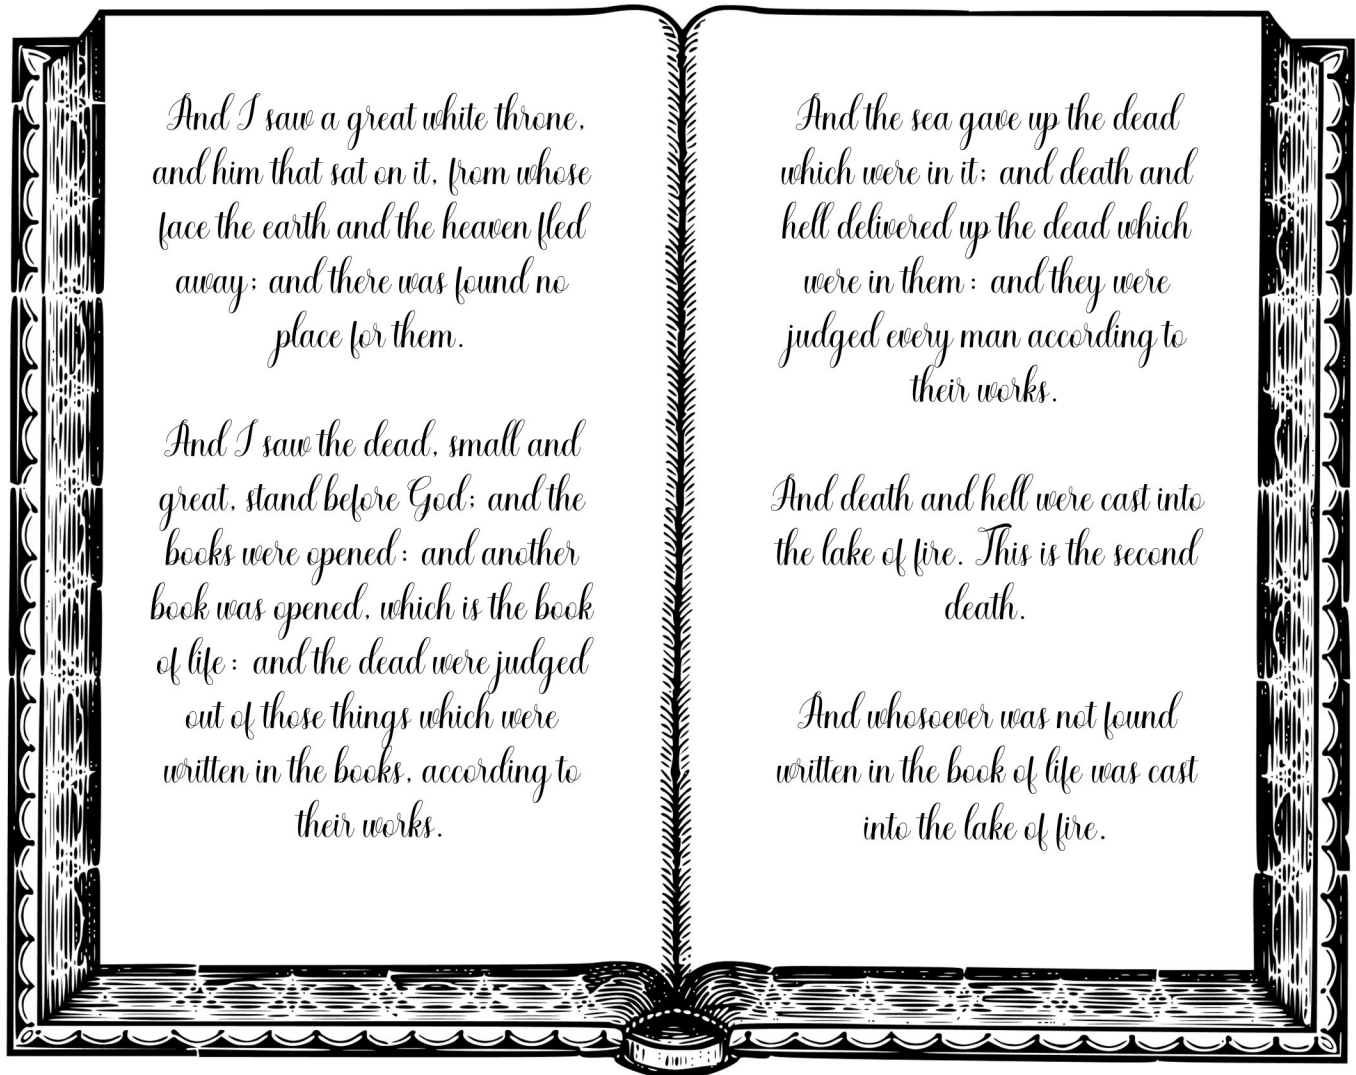 And I saw a great white throne,
and him that sat on it, from whose
face the earth and the heaven fled
away; and there was found no
place for them.
And I saw the dead, small and
great, stand before God; and the
books were opened: and another
book was opened, which is the book
of life: and the dead were judged
out of those things which were
written in the books, according to
their works.
And the sea gave up the dead
which were in it; and death and
hell delivered up the dead which
were in them: and they were
judged every man according to
their works.
And death and hell were cast into
the lake of fire. This is the second
death.
And whosoever was not found
written in the book of life was cast
into the lake of fire.